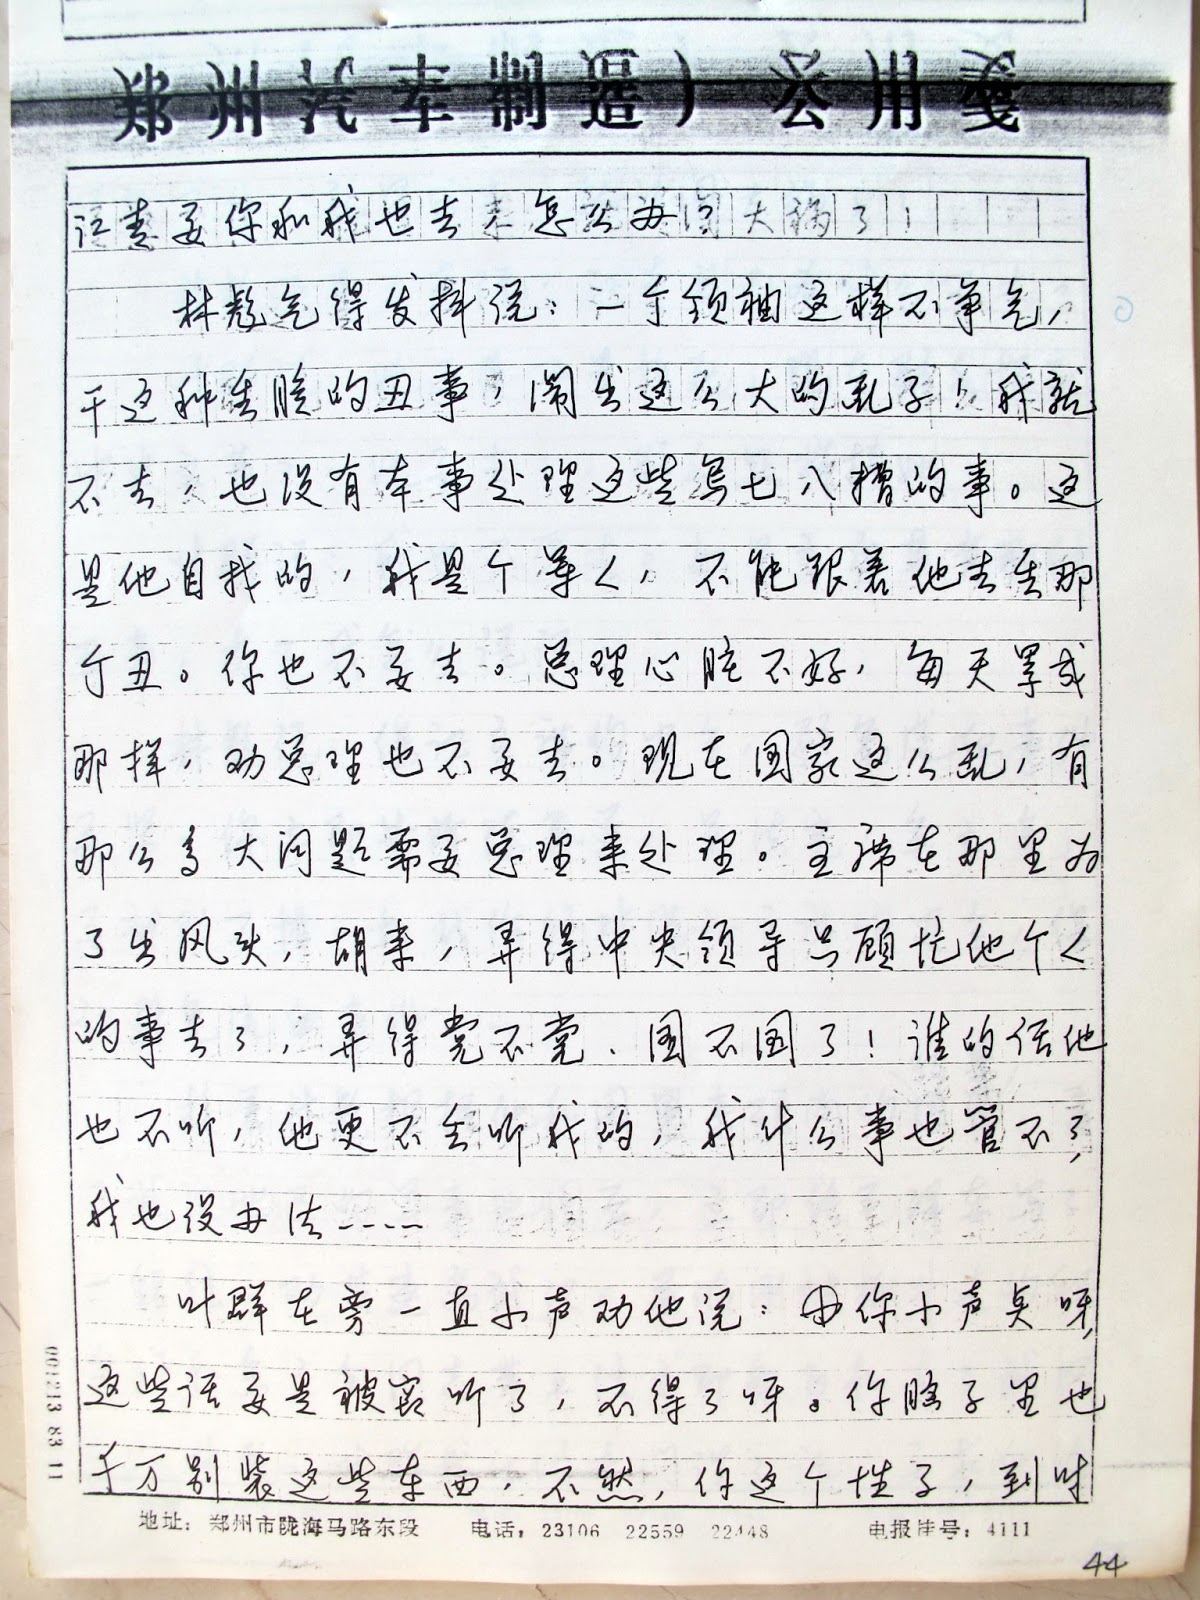 郑州汽车制造厂公用笺
江青要你和我也去,怎么办?闯大祸了!
林彪气得发抖说:一个领袖这样不争气,
干这种丢脸的丑事,闹出这么大的乱子!我就
不去,也没有本事处理这些乌七八糟的事。这
是他自找的,我是个军人,不能跟着他去丢那
个丑。你也不要去。总理心脏不好,每天累成
那样,劝总理也不要去。现在国家这么乱,有
那么多大问题需要总理来处理。主席在那里为
了出风头,胡来,弄得中央领导只顾忙他个人
的事去了,弄得党不党、国不国了!谁的话他
也不听,他更不会听我的,我什么事也管不了,
我也没办法----
叶群在旁一直小声劝他说:你小声点呀,
这些话要是被窃听了,不得了呀。你脑子里也
千万别装这些东西,不然,你这个性子,到时
地址:郑州市陇海马路东段 电话:23106 22559 22448 电报挂号:4111
44